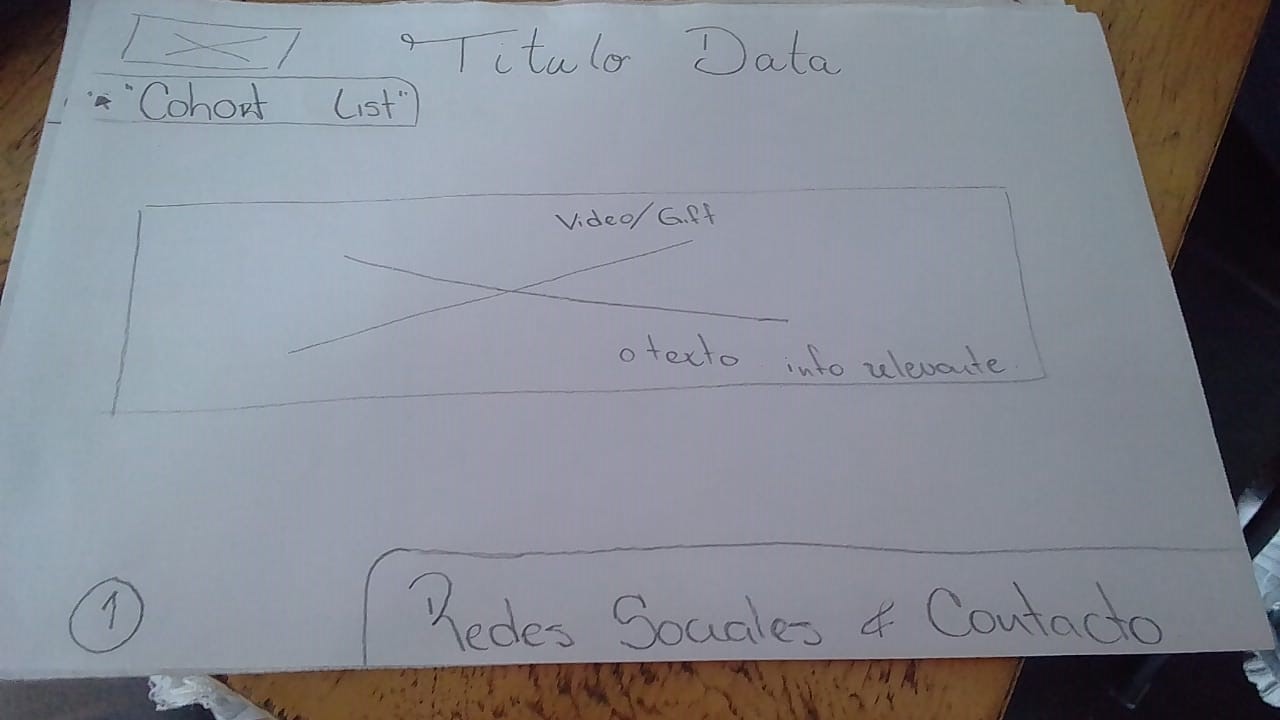 Titulo Data
"Cohort List"
Video/Giff
o texto info relevante
1
Redes Sociales & Contacto